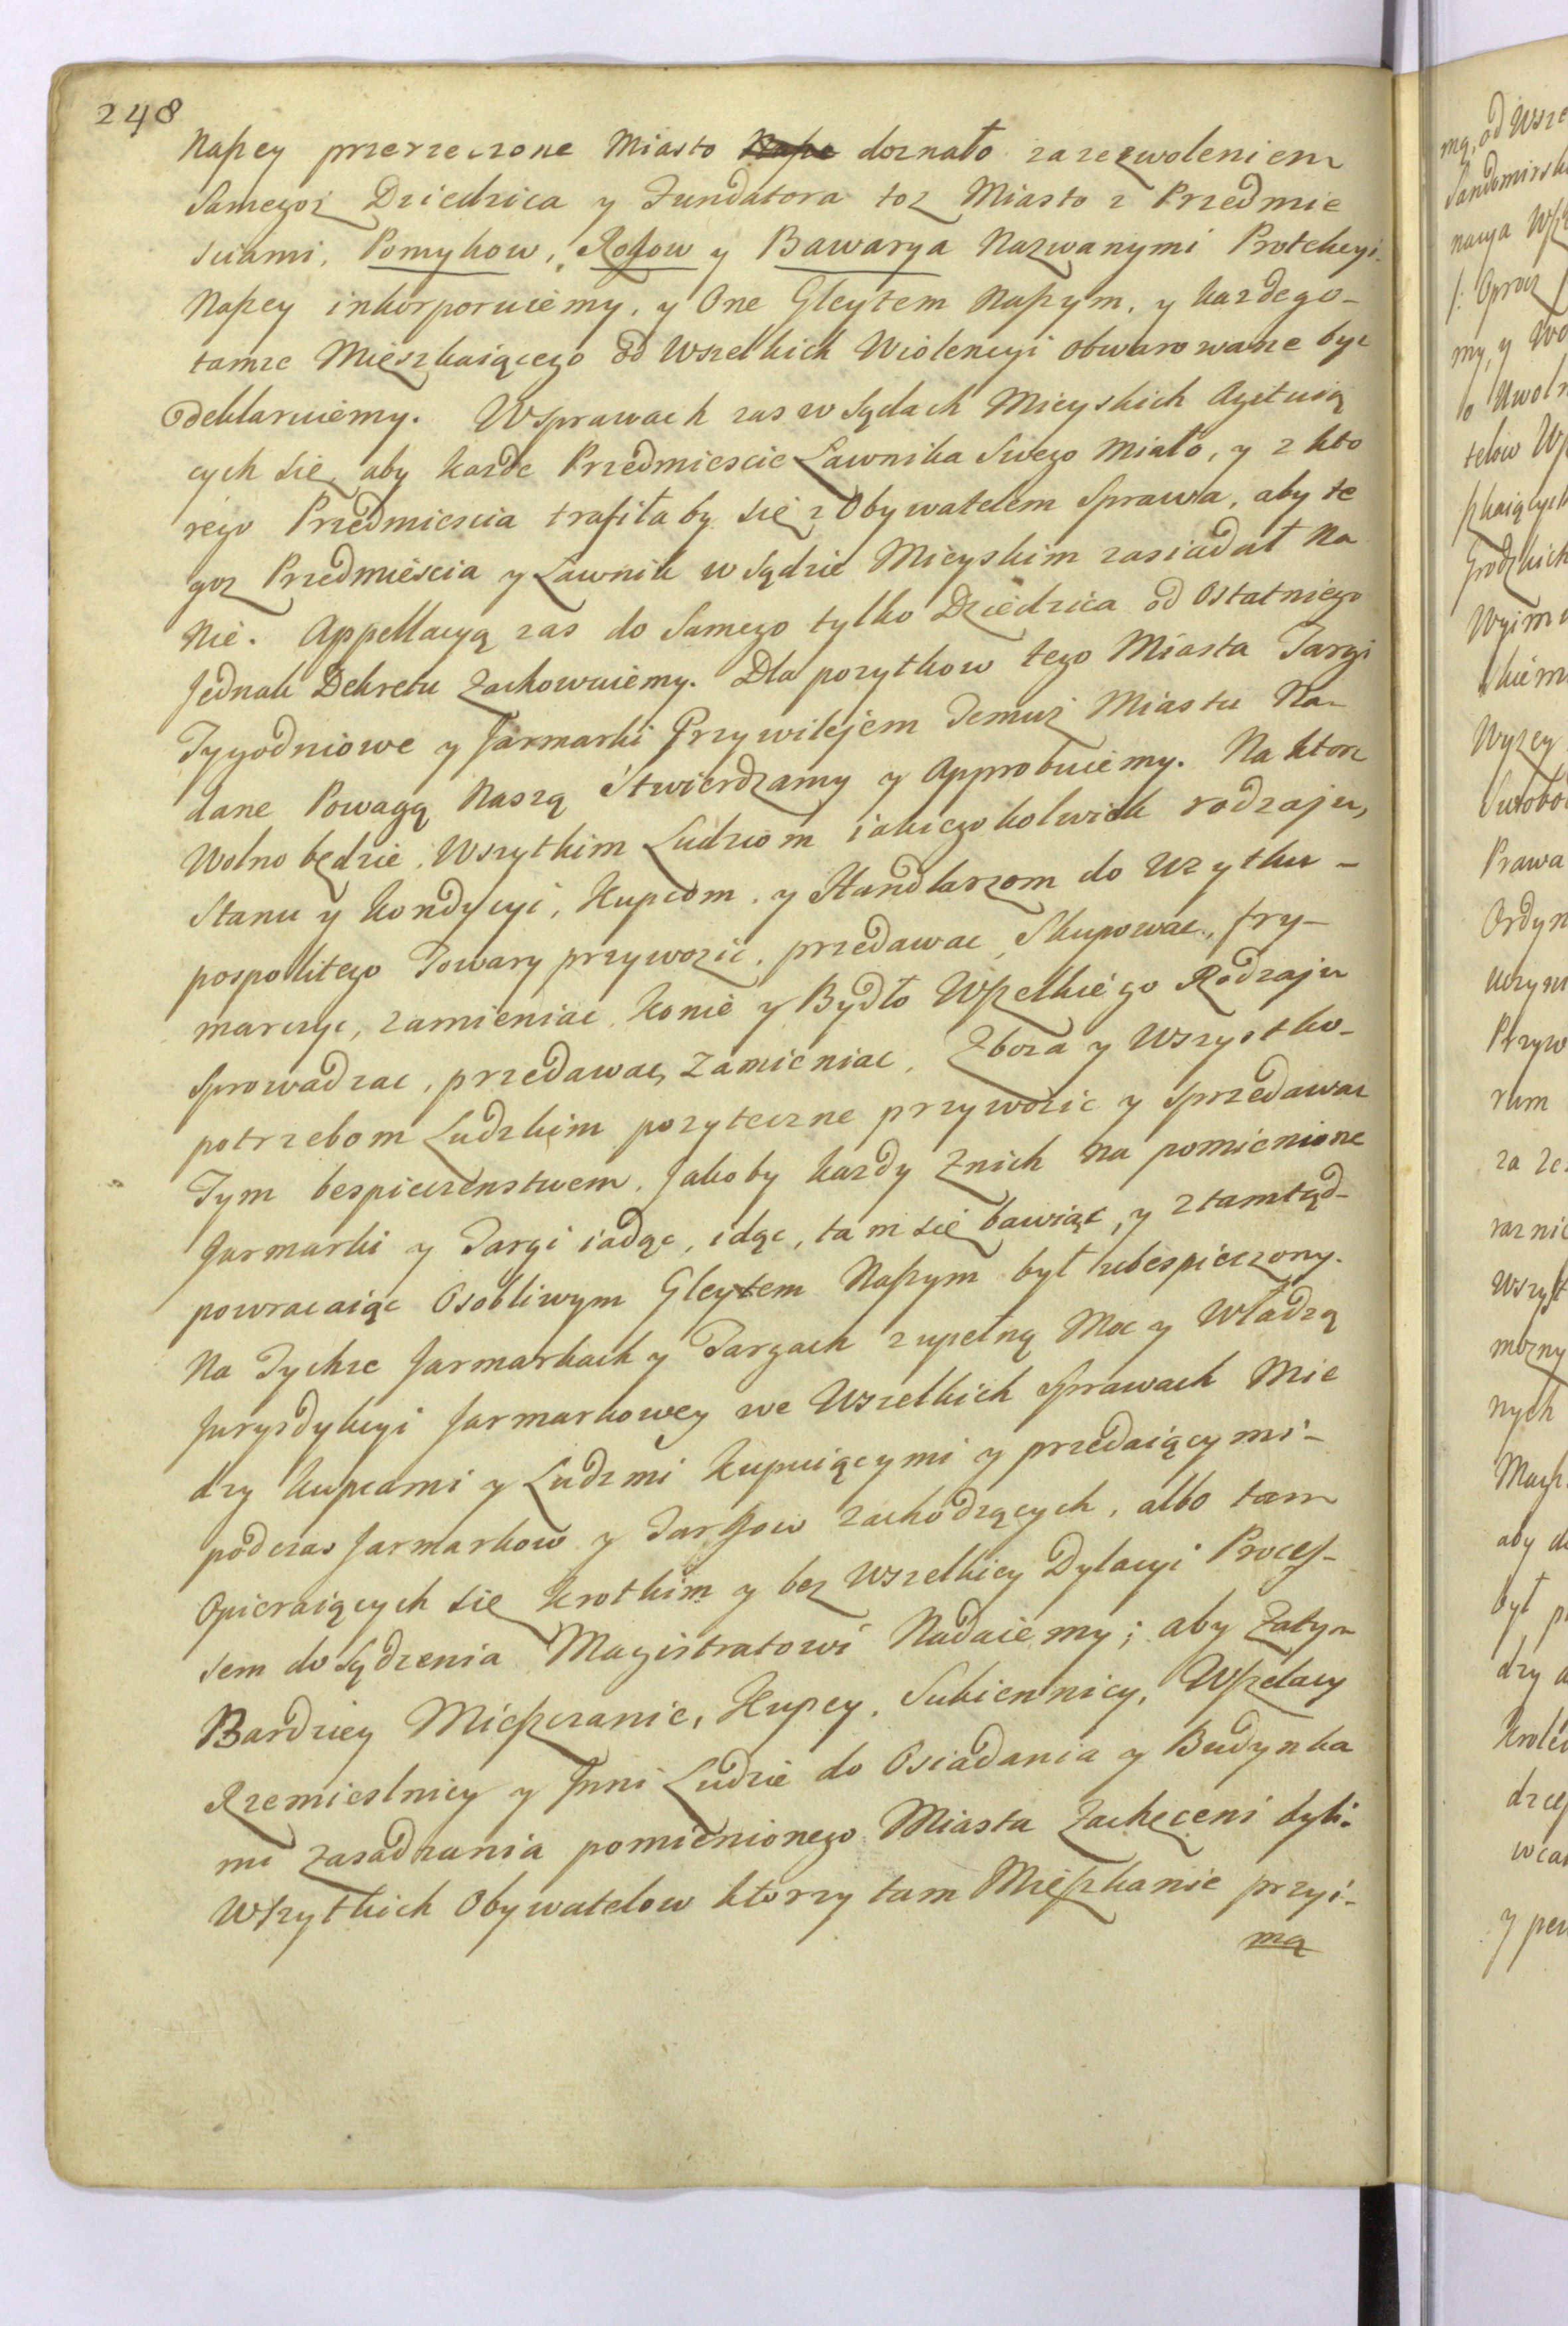 248
Naszey przerzeczone Miasto doznało zazezwoleniem
Samegoż Dziedzica y Fundatora toz Miasto z Przedmie
sciami, Pomykow, Rogow y Bawarya Nazwanymi Protekcyi
Naszey inkorporuiemy, y One Gleytem Naszym, y kazdego-
tamze Mieszkaiącego od Wszelkich Wiolencyi obwarowane byc
deklaruiemy. W sprawach zas w Sądach Mieyskich Agituią
cych się, aby kazde Przedmiescie Ławnika Swego Miało, y z kto
rego Przedmiescia trafiłaby się z Obywatelem Sprawa, aby te
goz Przedmiescia y Ławnik w Sądzie Mieyskim zasiadał Na
nie. Appellacyą zas do Samego tylko Dziedzica od Ostatniego
Jednak Dekretu zachowuiemy. Dla pozytkow tego Miasta Targi
Tygodniowe y Jarmarki Przywilejem Temuż Miastu Na-
dane Powagą Naszą Stwierdzamy y Approbuiemy. Na ktore
Wolno będzie Wszytkim Ludziom iakiegokolwiek rodzaju,
Stanu y Kondycyi, Kupcom, y Handlarzom do Uzytku-
pospolitego Towary przywozic, przedawac, Skupowac, fry-
marczyc, zamieniac, Konie y Bydło Wszelkiego Rodzaju
Sprowadzac, przedawac, zamieniac, Zboza y Wszystko-
potrzebom Ludzkim pozyteczne przywozic y Sprzedawac
Tym bespieczenstwem, Jakoby kazdy Znich na pomienione
Jarmarki y Targi iadąc, idąc, tam się bawiąc, y ztamtąd-
powracaiąc Osobliwym Gleytem Naszym był ubespieczony.
Na Tychze Jarmarkach y Targach zupełną Moc y Władzą
Jurysdykcyi Jarmarkowey we Wszelkich Sprawach Mie
dzy Kupcami y Ludzmi Kupuiącymi y przedaiącymi-
podczas Jarmarkow y Targow zachodzących, albo tam
Opieraiących się Krotkim y bez Wszelkiey Dylacyi Proces-
sem do Sądzenia Magistratowi Nadaiemy; aby Zatym
Bardziey Mieszczanie, Kupcy, Sukiennicy, Wszelacy
Rzemieslnicy y Jnni Ludzie do Osiadania y Budynka
mi Zasadzania pomienionego Miasta Zachęceni byli.
Wszytkich Obywatelow ktorzy tam Mieszkanie przyi-
mą